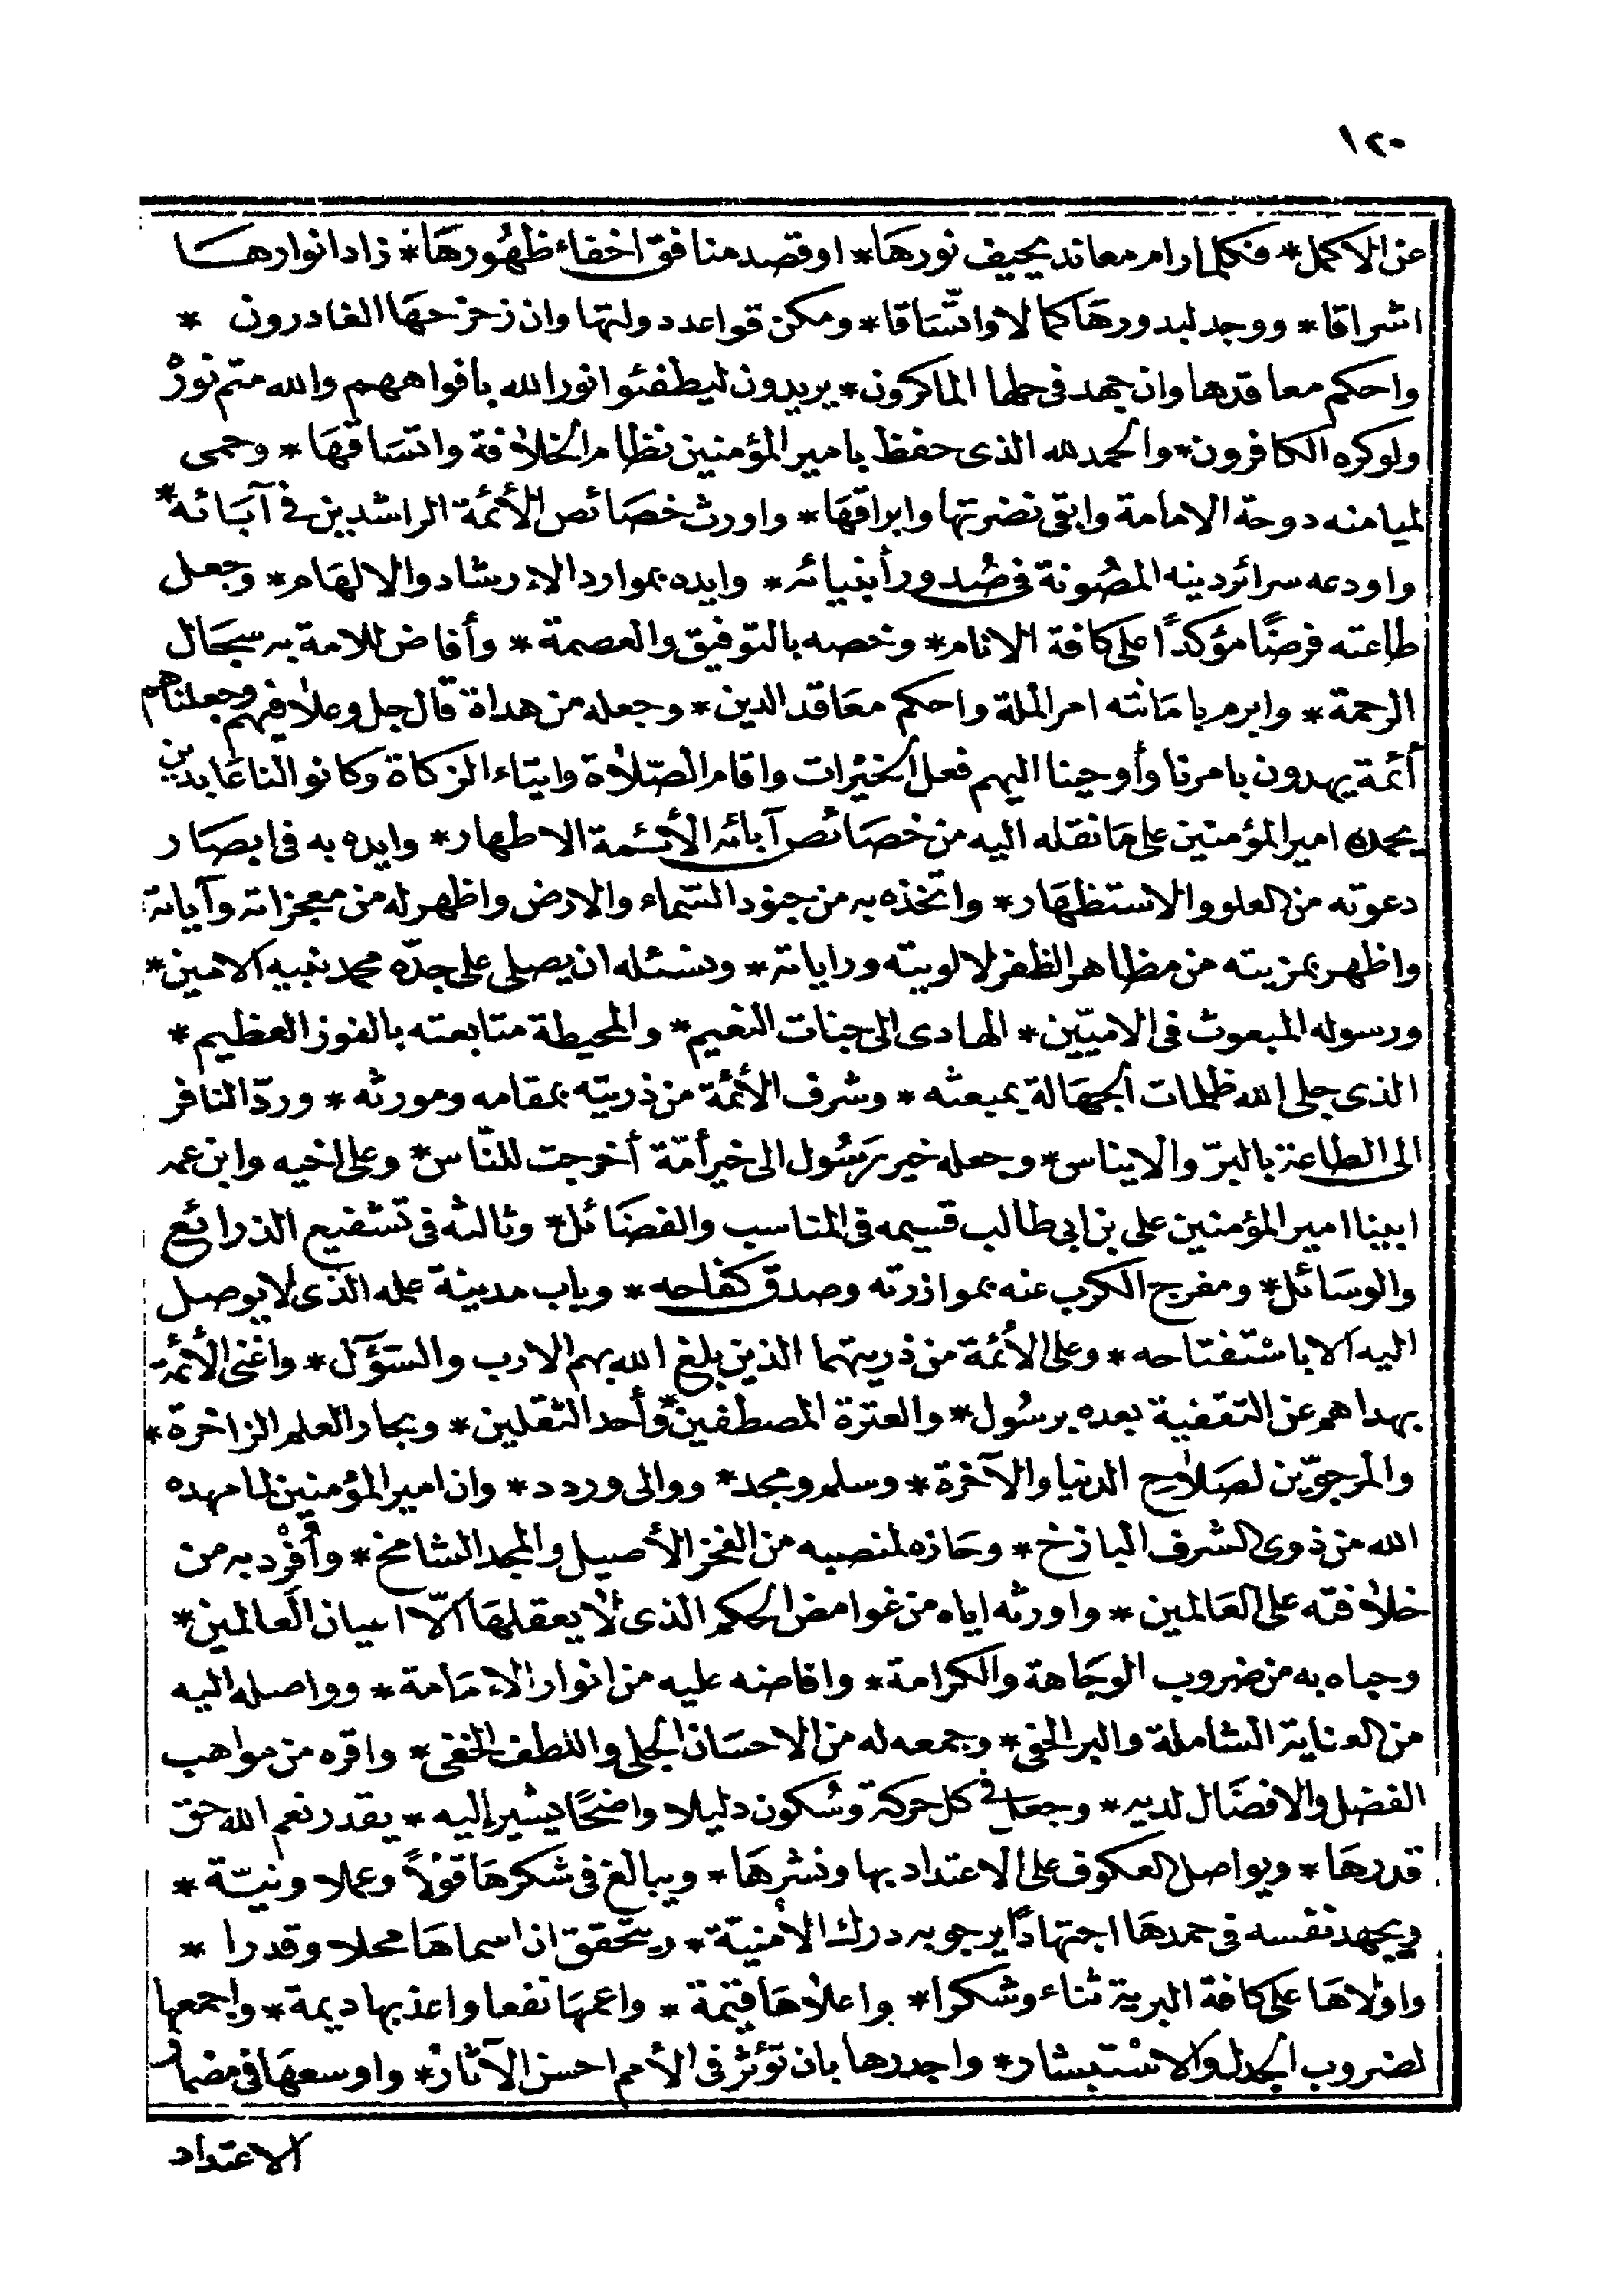 ١٢٠
عن الاكمل * فكلما رام معاند يحيف نورها * او قصد منافق اخفاء ظهورها * زاد انوارها
اشراقا * ووجد لبدورها كمالا واتّساقا * ومكن قواعد دولتها وان زحزحها الغادرون *
واحكم معاقدها وان جهد في حلها الماكرون * يريدون ليطفئوا نورالله بافواههم والله متم نوره
ولوكره الكافرون * والحمد لله الذى حفظ بامير المؤمنين نظام الخلافة واتساقها * وحمى
لميامنه دوحة الامامة وابقى نضرتها وابراقها * واورث خصائص الأئمة الراشدين في آبائه *
واودعه سرائر دينه المصُونة في صُدور أنبيائه * وايده بموارد الارشاد والالهام * وجعل
طاعته فرضًا مؤكدًا على كافة الانام * وخصه بالتوفيق والعصمة * وأفاض للامة به سجال
الرحمة * وابرم بامانته امر الملة واحكم معاقد الدين * وجعله من هداة قال جل وعلا فيهم وجعلناهم
أئمة يهدون بامرنا وأوحينا اليهم فعل الخيرات واقام الصلاة وايتاء الزكاة وكانوا لنا عابدين
يحمده امير المؤمنين على مانقله اليه من خصائص آبائه الأئمة الاطهار * وايده به في ابصار
دعوته من العلو والاستظهار * واتخذه به من جنود السّماء والارض واظهر له من معجزاته وآياته
واظهر بمزيته من مظاهر الظفر لالويته وراياته * ونسئله ان يصلى على جدّه محمد نبيه الامين *
ورسوله المبعوث في الاميّين * الهادى الى جنات النعيم * والمحيطة متابعته بالفوز العظيم *
الذى جلى الله ظلمات الجهالة بمبعثه * وشرف الأئمة من ذريته بمقامه ومورثه * وردّ النافر
الى الطاعة بالبرّ والايناس * وجعله خير رسُول الى خير أمّة أخرجت للنّاس * وعلى اخيه وابن عمه
ابينا امير المؤمنين على بن ابى طالب قسيمه في المناسب والفضائل * وثالثه في تشفيع الذرائع
والوسائل * ومفرج الكرب عنه بموازرته وصدق كفاحه * وباب مدينة علمه الذى لايوصل
اليه الا باستفتاحه * وعلى الأئمة من ذريتهما الذين بلغ الله بهم الارب والسّؤل * واغنى الأئمة
بهداهم عن التقفية بعده برسُول * والعترة المصطفين * وأحد الثقلين * وبحار العلم الزاخرة *
والمرجوّين لصَلاح الدنيا والآخرة * وسلم ومجد * ووالى وردد * وان امير المؤمنين لما مهده
الله من ذوى الشرف الباذخ * وحازه لمنصبه من الفخر الأصيل والمجد الشامخ * وأفرد به من
خلافته على العالمين * واورثه اياه من غوامض الحكم الذى لايعقلها الّا اعيان العالمين *
وحباه به من ضروب الوجَاهة والكرامة * وافاضه عليه من انوار الامَامة * وواصله اليه
من العناية الشاملة والبر الحفى * وجمعه له من الاحسَان الجلى واللطف الخفى * واقره من مواهب
الفضل والافضَال لديه * وجعل في كل حركة وسُكون دليلا واضحًا يشير إليه * يقدر نعم الله حق
قدرها * ويواصل العكوف على الاعتداد بها ونشرها * ويبالغ في شكرها قولاً وعملا ونيّة *
ويجهد نفسه في حمدها اجتهادًا يرجو به درك الأمنيّة * ويتحقق ان اسماها محلا وقدرا *
واولاها على كافة البرية ثناء وشكرا * واعلاها قيمة * واعمها نفعا واعذبها ديمة * واجمعها
لضروب الجدل والاستبشار * واجدرها بان تؤثر في الأمم احسن الآثار * واوسعها في مضمار
الاعتداد